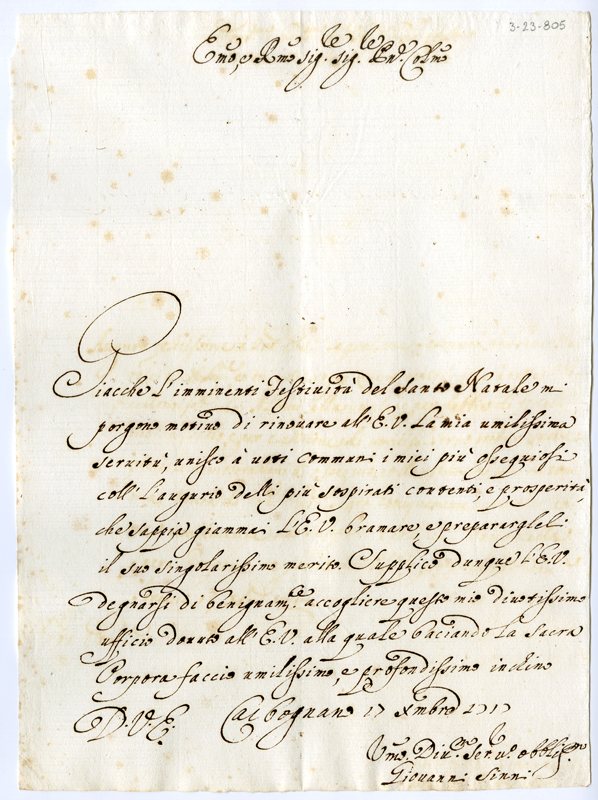 3-23-805
Emo, e Rmo Sig.re Sig.re Pad. Colmo
Giacche L'imminenti Festiuità del Santo Natale mi
porgono motiuo di rinouare all'E.V. La mia umilissima
seruitù, unisco à uoti communi i miei più ossequiosi
coll'Laugurio delli più sospirati contenti, e prosperità,
che sappia giammai L'E.V. bramare, e preparargleli
il suo singolarissimo merito. Supplico dunque L'E.V.
degnarsi di benignam.te accogliere questo mio diuotissimo
ufficio douuto all'E.V. alla quale baciando La Sacra
Porpora faccio umilissimo, e profondissimo inchino
D. V. E. 17 Xmbre 1717
Vmo, Diu.mo Ser.u.e obblig.mo
Giouanni Sinni